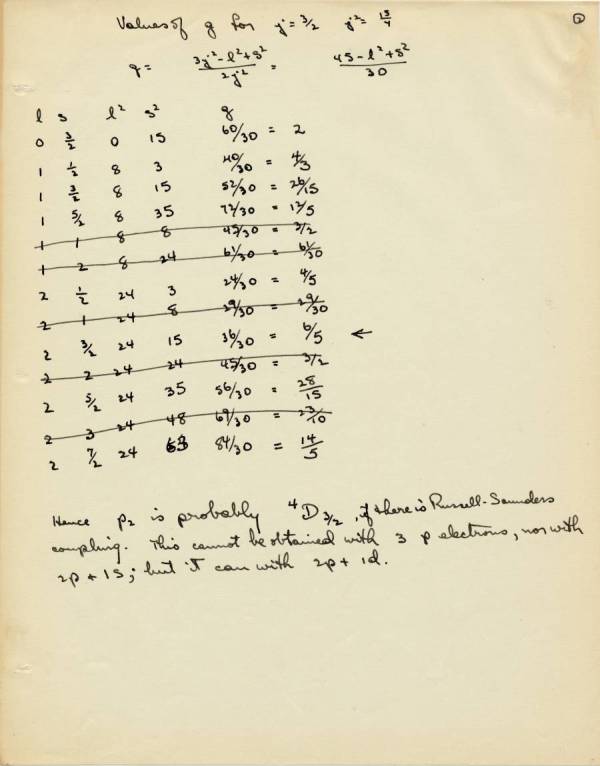 Values of g for j = 3/2 j² = 15/4 ②
g = (3j² - l² + s²)/2j² = (45 - l² + s²)/30
l s l² s² g
0 3/2 0 15 60/30 = 2
1 1/2 8 3 40/30 = 4/3
1 3/2 8 15 52/30 = 26/15
1 5/2 8 35 72/30 = 12/5
1 1 8 8 45/30 = 3/2
1 2 8 24 61/30 = 61/30
2 1/2 24 3 24/30 = 4/5
2 1 24 8 29/30 = 29/30
2 3/2 24 15 36/30 = 6/5 ←
2 2 24 24 45/30 = 3/2
2 5/2 24 35 56/30 = 28/15
2 3 24 48 69/30 = 23/10
2 7/2 24 63 84/30 = 14/5
Hence p₂ is probably ⁴D₃/₂, if there is Russell-Saunders
coupling. This cannot be obtained with 3 p electrons, nor with
2p + 1s; but it can with 2p + 1d.